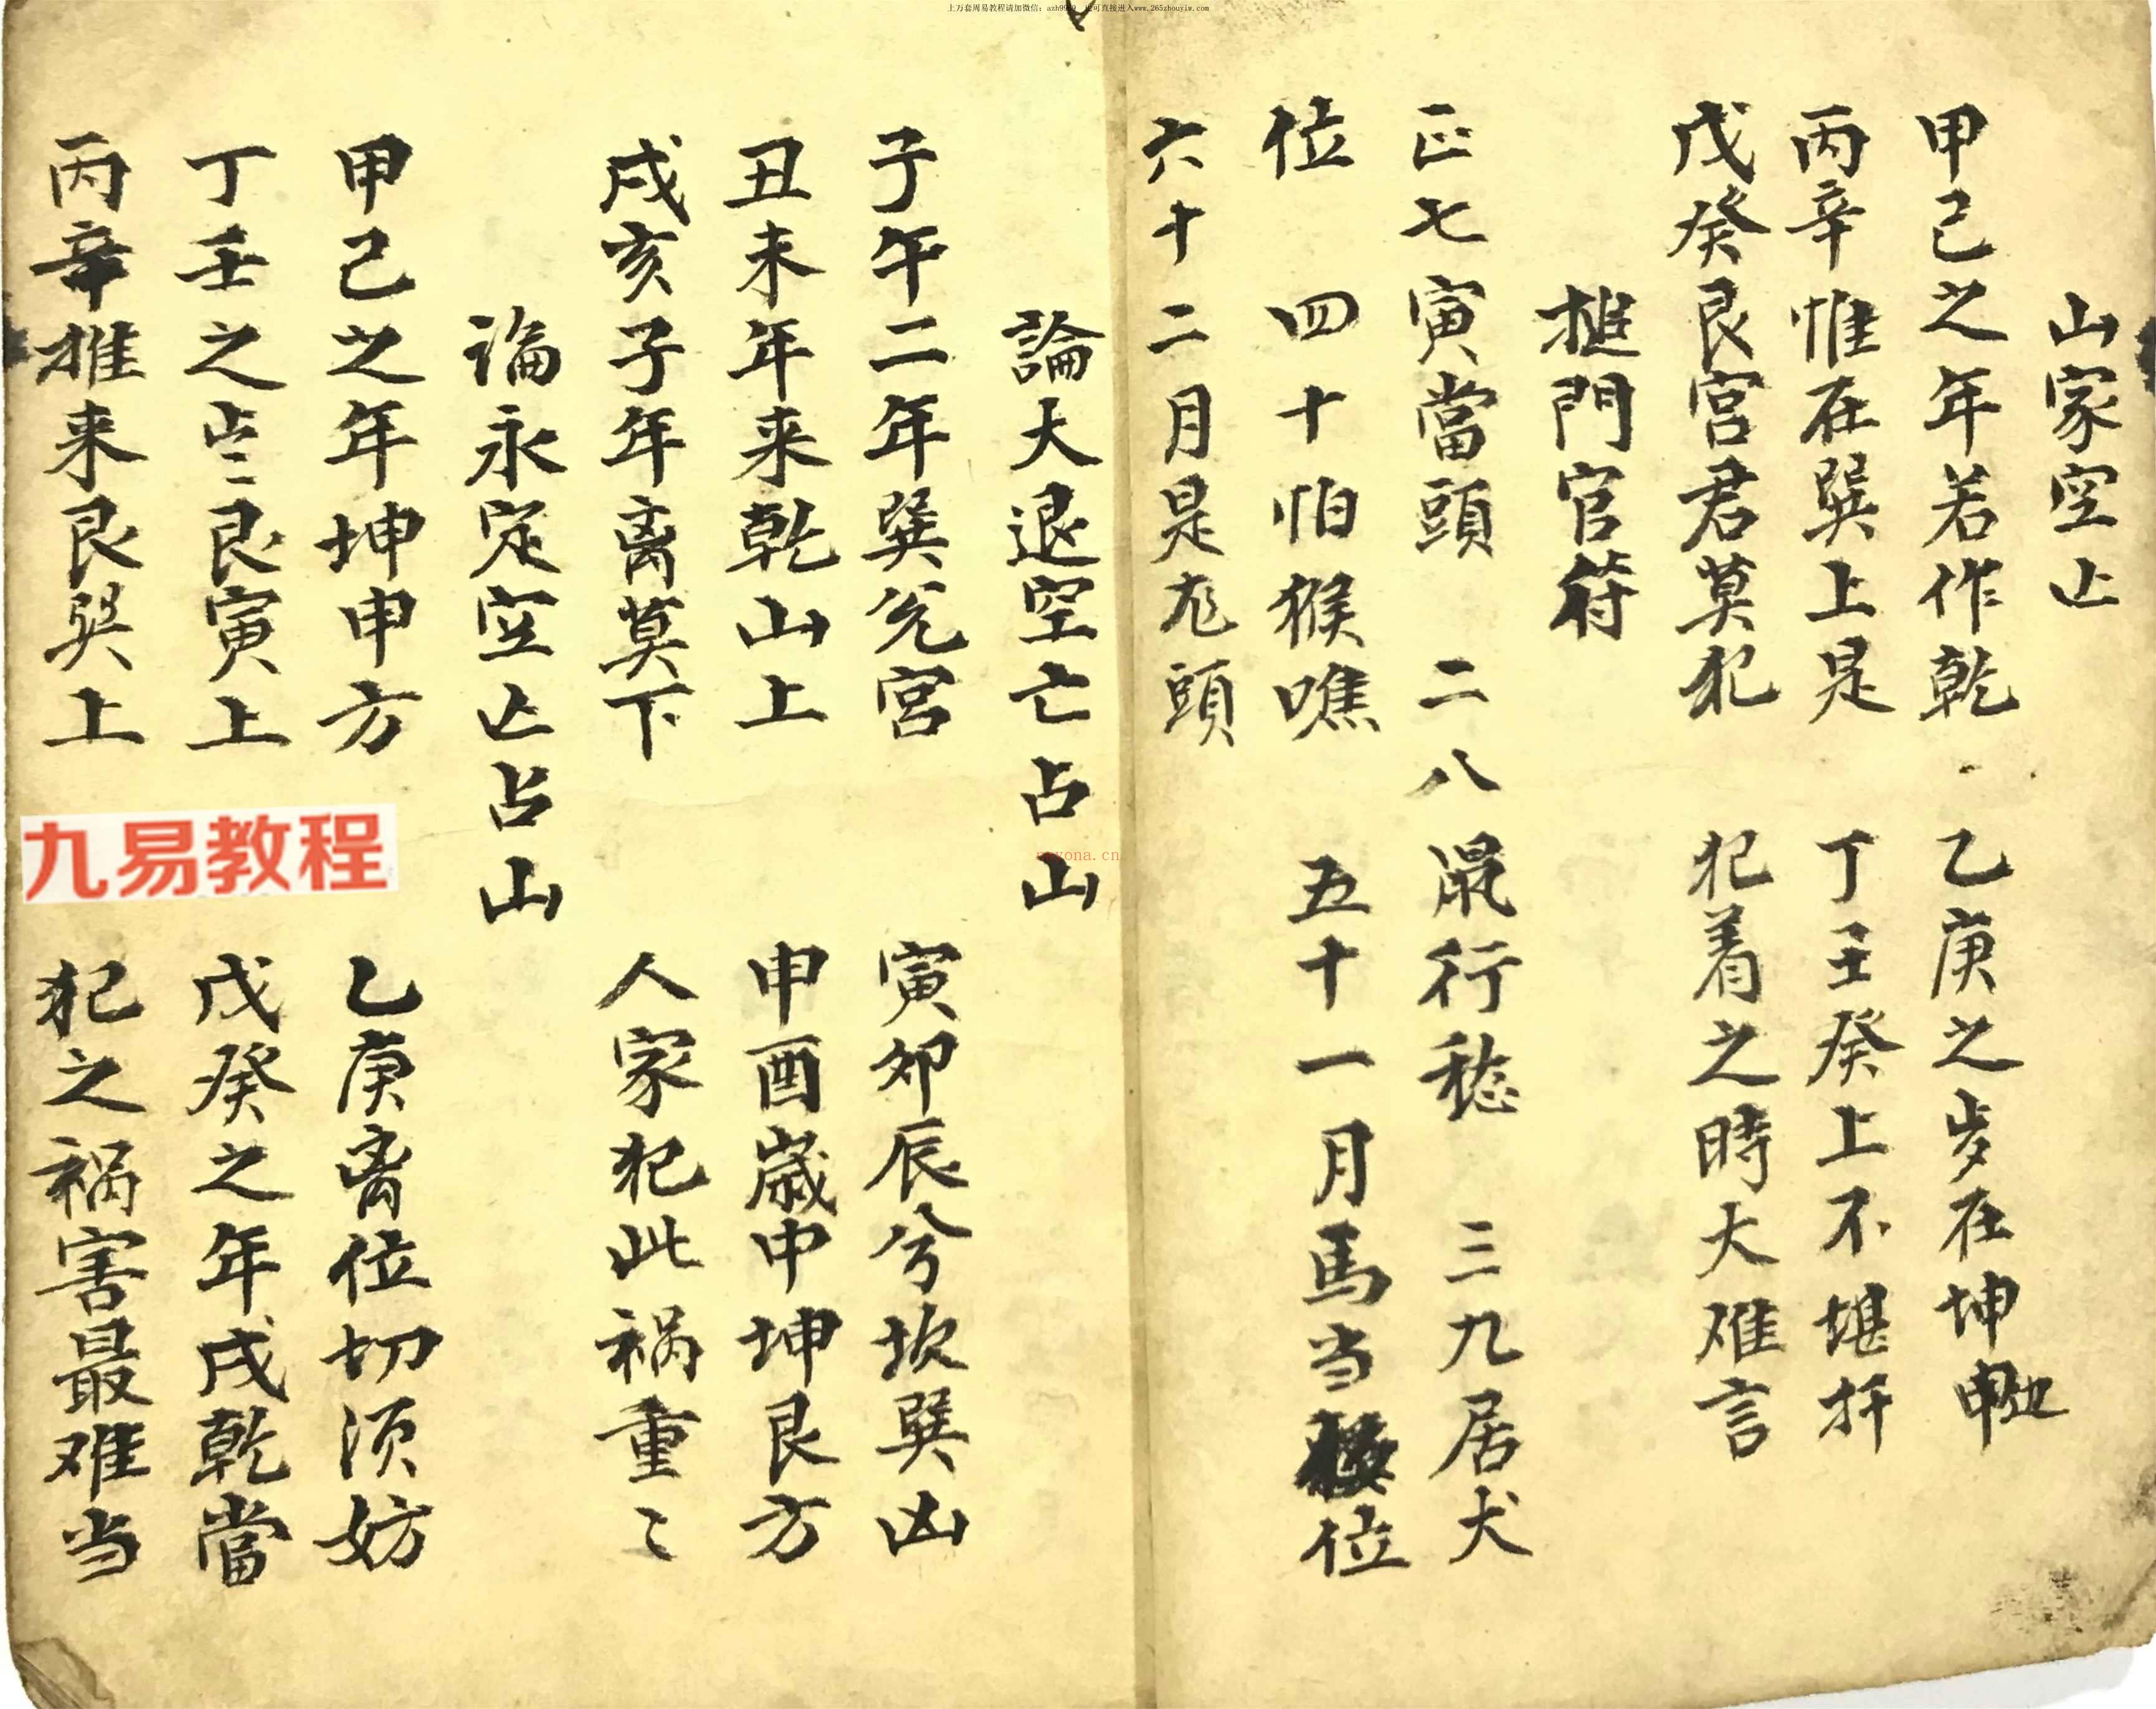 上万套周易教程请加微信：
可直接进入www.265zhouyiw.com
山家空亡
甲己之年若作乾 乙庚之岁在坤申
丙辛惟在巽上是 丁壬癸上不堪扦
戊癸艮宫君莫犯 犯着之時大难言
門官符
正七寅當頭 二八鼠行 三九居犬
位 四十怕猴 五十一月馬当位
六十二月是 頭
論大退空亡占山
子午二年巽兑宫 寅卯辰兮坎巽凶
丑未年来乾山上 申酉歲中坤艮方
戌亥子年离莫下 人家犯此祸重〻
論永定空亡占山
甲己之年坤申方 乙庚离位切须妨
丁壬之 艮寅上 戊癸之年戌乾當
丙辛推来艮巽上 犯之祸害最难当
九易教程
nayona.cn